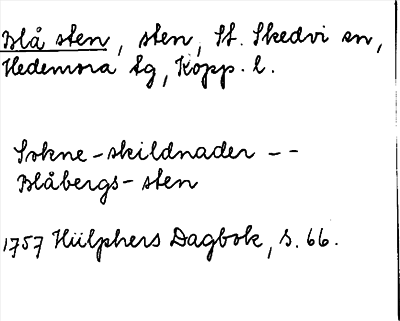 Blå sten, sten, St. Skedvi sn,
Hedemora tg, Kopp. l.
Sokne-skildnader - -
Blåbergs-sten
1757 Hülphers Dagbok, s. 66.